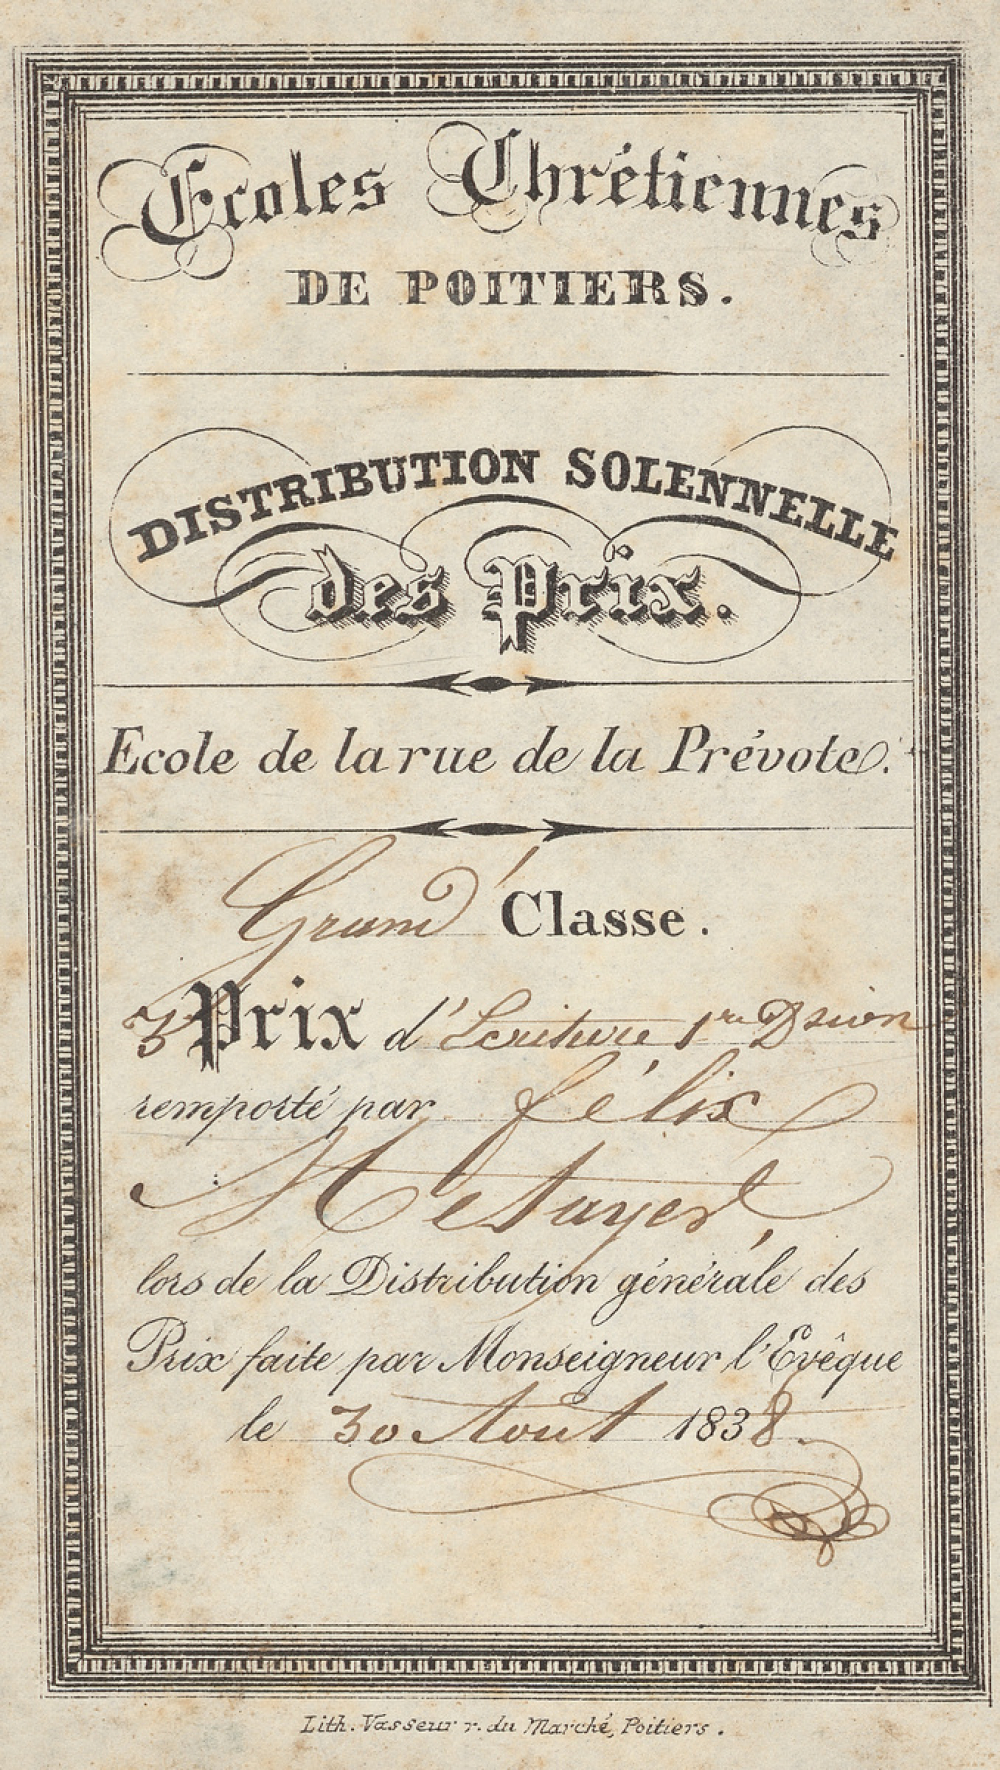 Ecoles Chrétiennes
DE POITIERS.
DISTRIBUTION SOLENNELLE
des Prix.
Ecole de la rue de la Prévote.
Grand' Classe.
3 Prix d'Ecriture 1re Dsion
remporté par félix
Metayer,
lors de la Distribution générale des
Prix faite par Monseigneur l'Evêque
le 30 Aout 1838.
Lith. Vasseur r. du Marché, Poitiers.